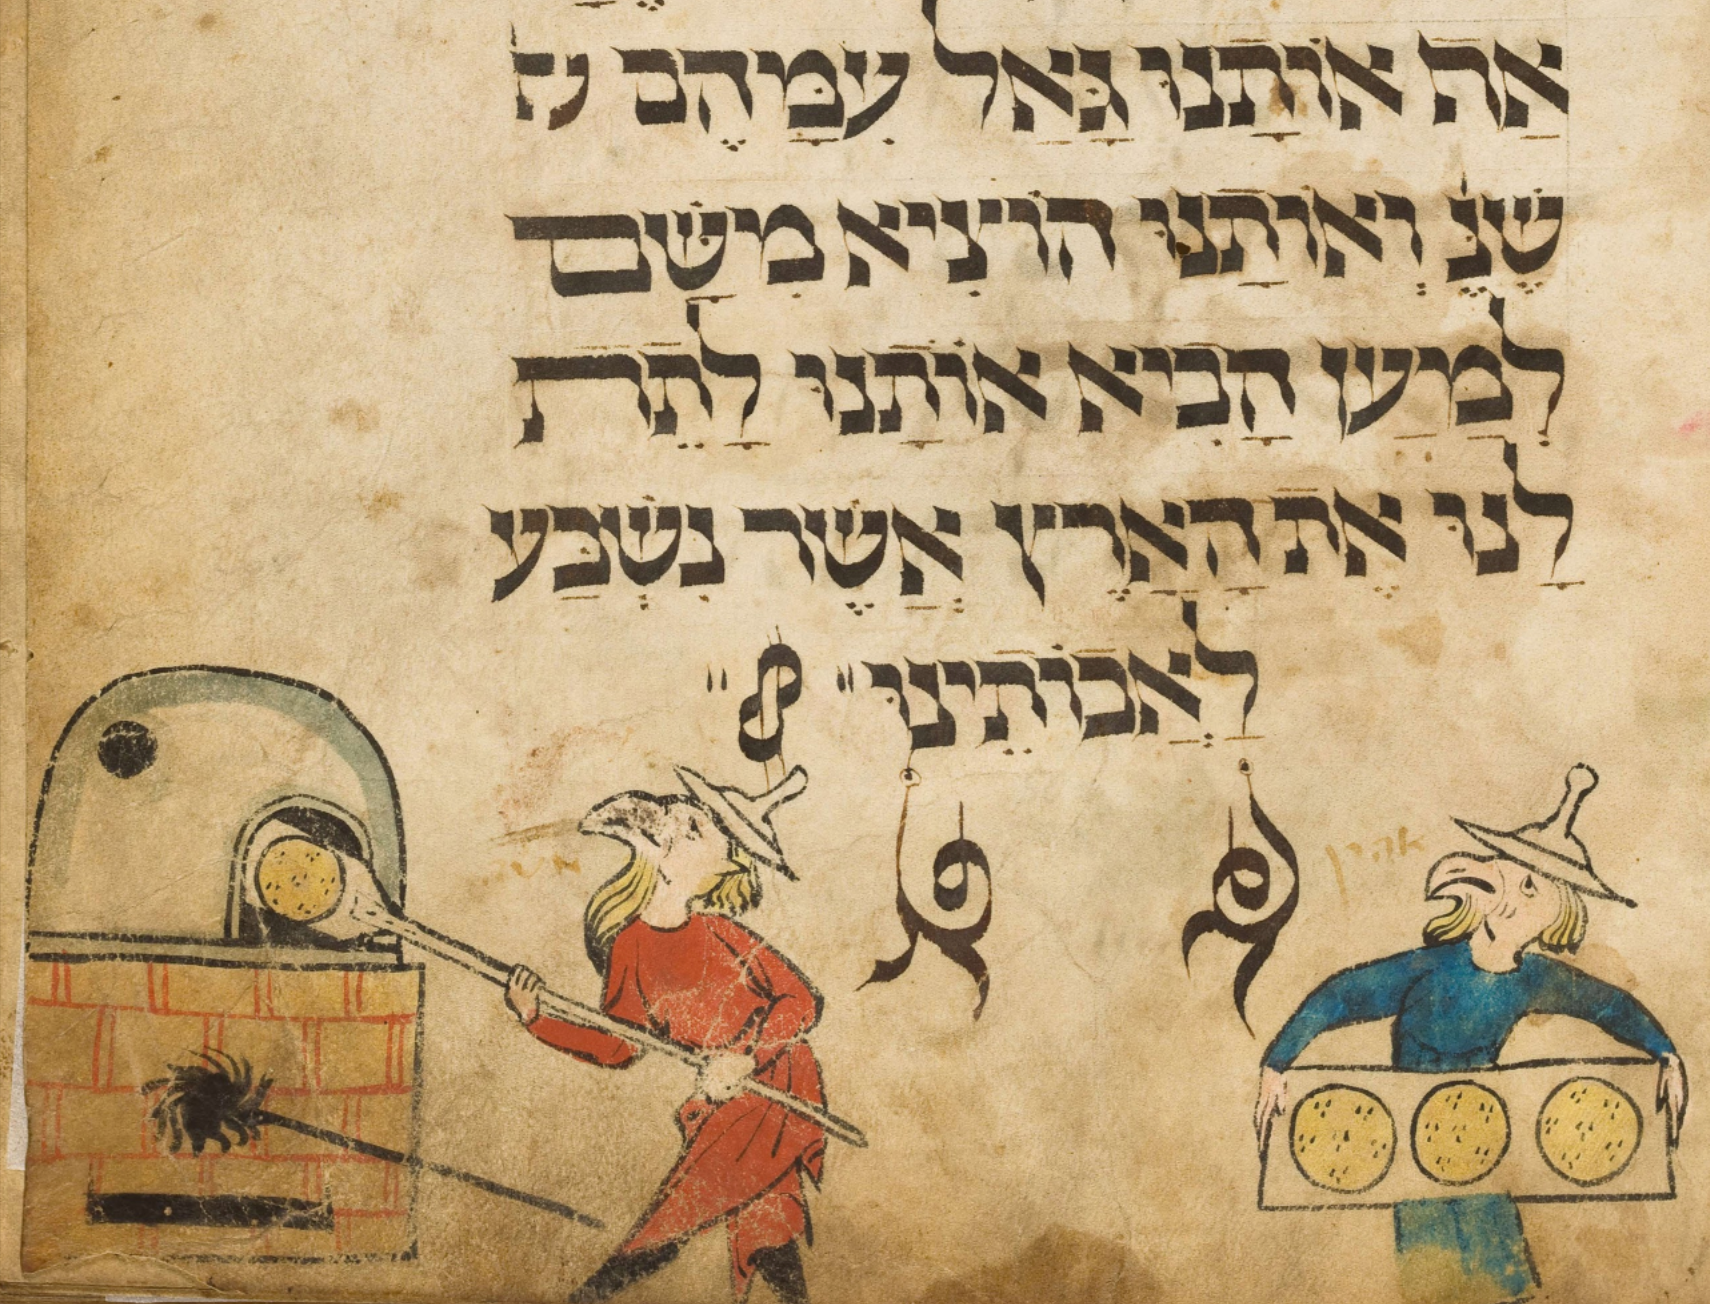 אַת אוֹתָנוּ גָּאַל עִמָּהֶם
שֶׁנֶּ֗ וְאוֹתָנוּ הוֹצִיא מִשָּׁם
לְמַעַן הָבִיא אוֹתָנוּ לָתֵת
לָנוּ אֶת הָאָרֶץ אֲשֶׁר נִשְׁבַּע
לַאֲבוֹתֵינוּ
משה
אהרן